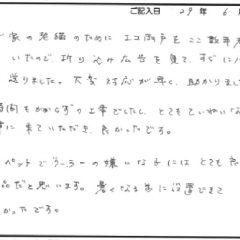 ご記入日 29年 6
家の発電のために エコ雨戸を ここ数年
いたので 折り込み広告を 見て、すぐにハ
送りました。大変 対応が早く、助かりまし
時間もかからずの工事でしたし、とてもていねいな
に来ていただき 良かったです。
ペットで うーろーの嫌いな子には とても良
品だと思います。暑くなる前に設置できて
かったです。